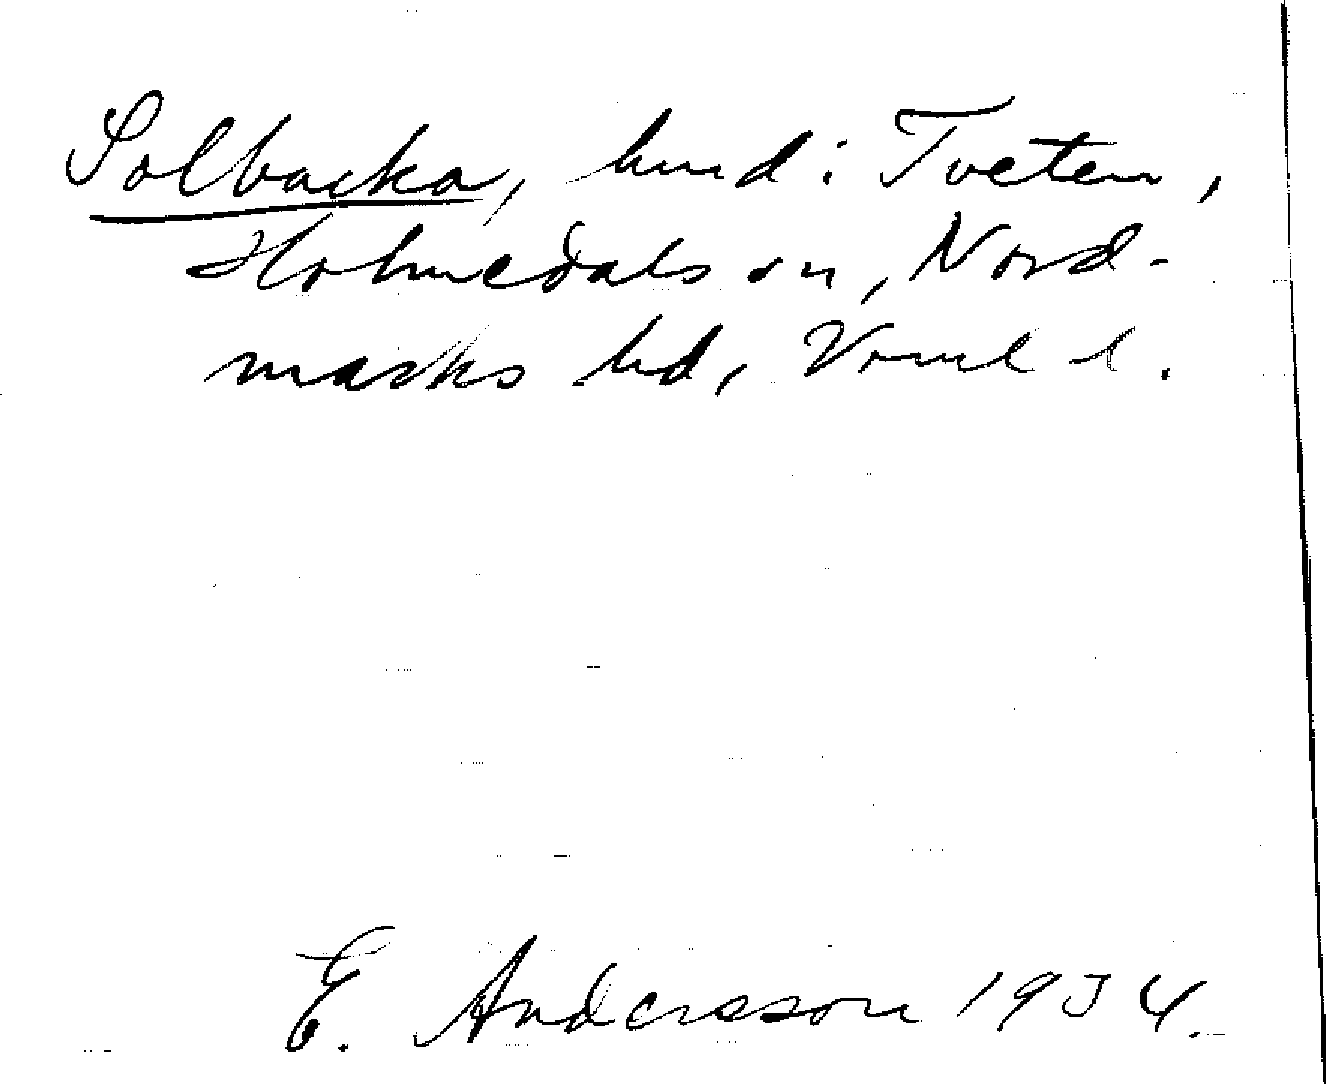 Solbacka, hmd i Tveten,
Holmedals sn, Nord-
marks hd, Vrml l.
E. Andersson 1934.